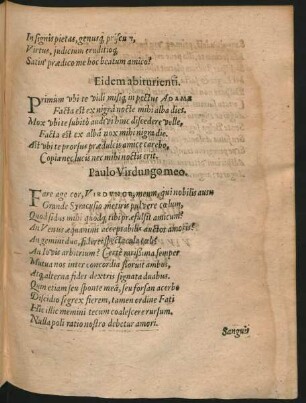 Insignis pietas, genusq́; priscum,
Virtus, iudicium eruditioq́;
Satin' prædico me hoc beatum amico?
Eidem abiturienti.
Primum vbi te vidi misiq́; in pectus ADAME
Facta est ex nigrâ nocte mihi alba dies.
Mox vbi te subitò audiui hinc discedere velle,
Facta est ex albâ nox mihi nigra die.
Ast vbi te prorsus prædulcis amice carebo,
Copia nec lucis nec mihi noctis erit.
Paulo Virdungo meo.
Fare age cor, VIRDVNGE, meum, qui nobilis auso
Grande Syracusio metiris puluere cœlum,
Quod sidus mihi quodq́; tibi præfulsit amicum?
An Venus æquanimi acceptabilis auctor amoris?
An gemini duo,
An Iovis arbitrium? Certè carissima semper
Mutua nos inter concordia floruit ambos,
Atq́; alterna fides dextris signata duabus.
Quin etiam seu sponte meâ, seu forsan acerbo
Discidio segrex fierem, tamen ordine Fati
Hîc illîc memini tecum coalescere rursum,
Nulla poli ratio nostro debetur amori.
Sanguis